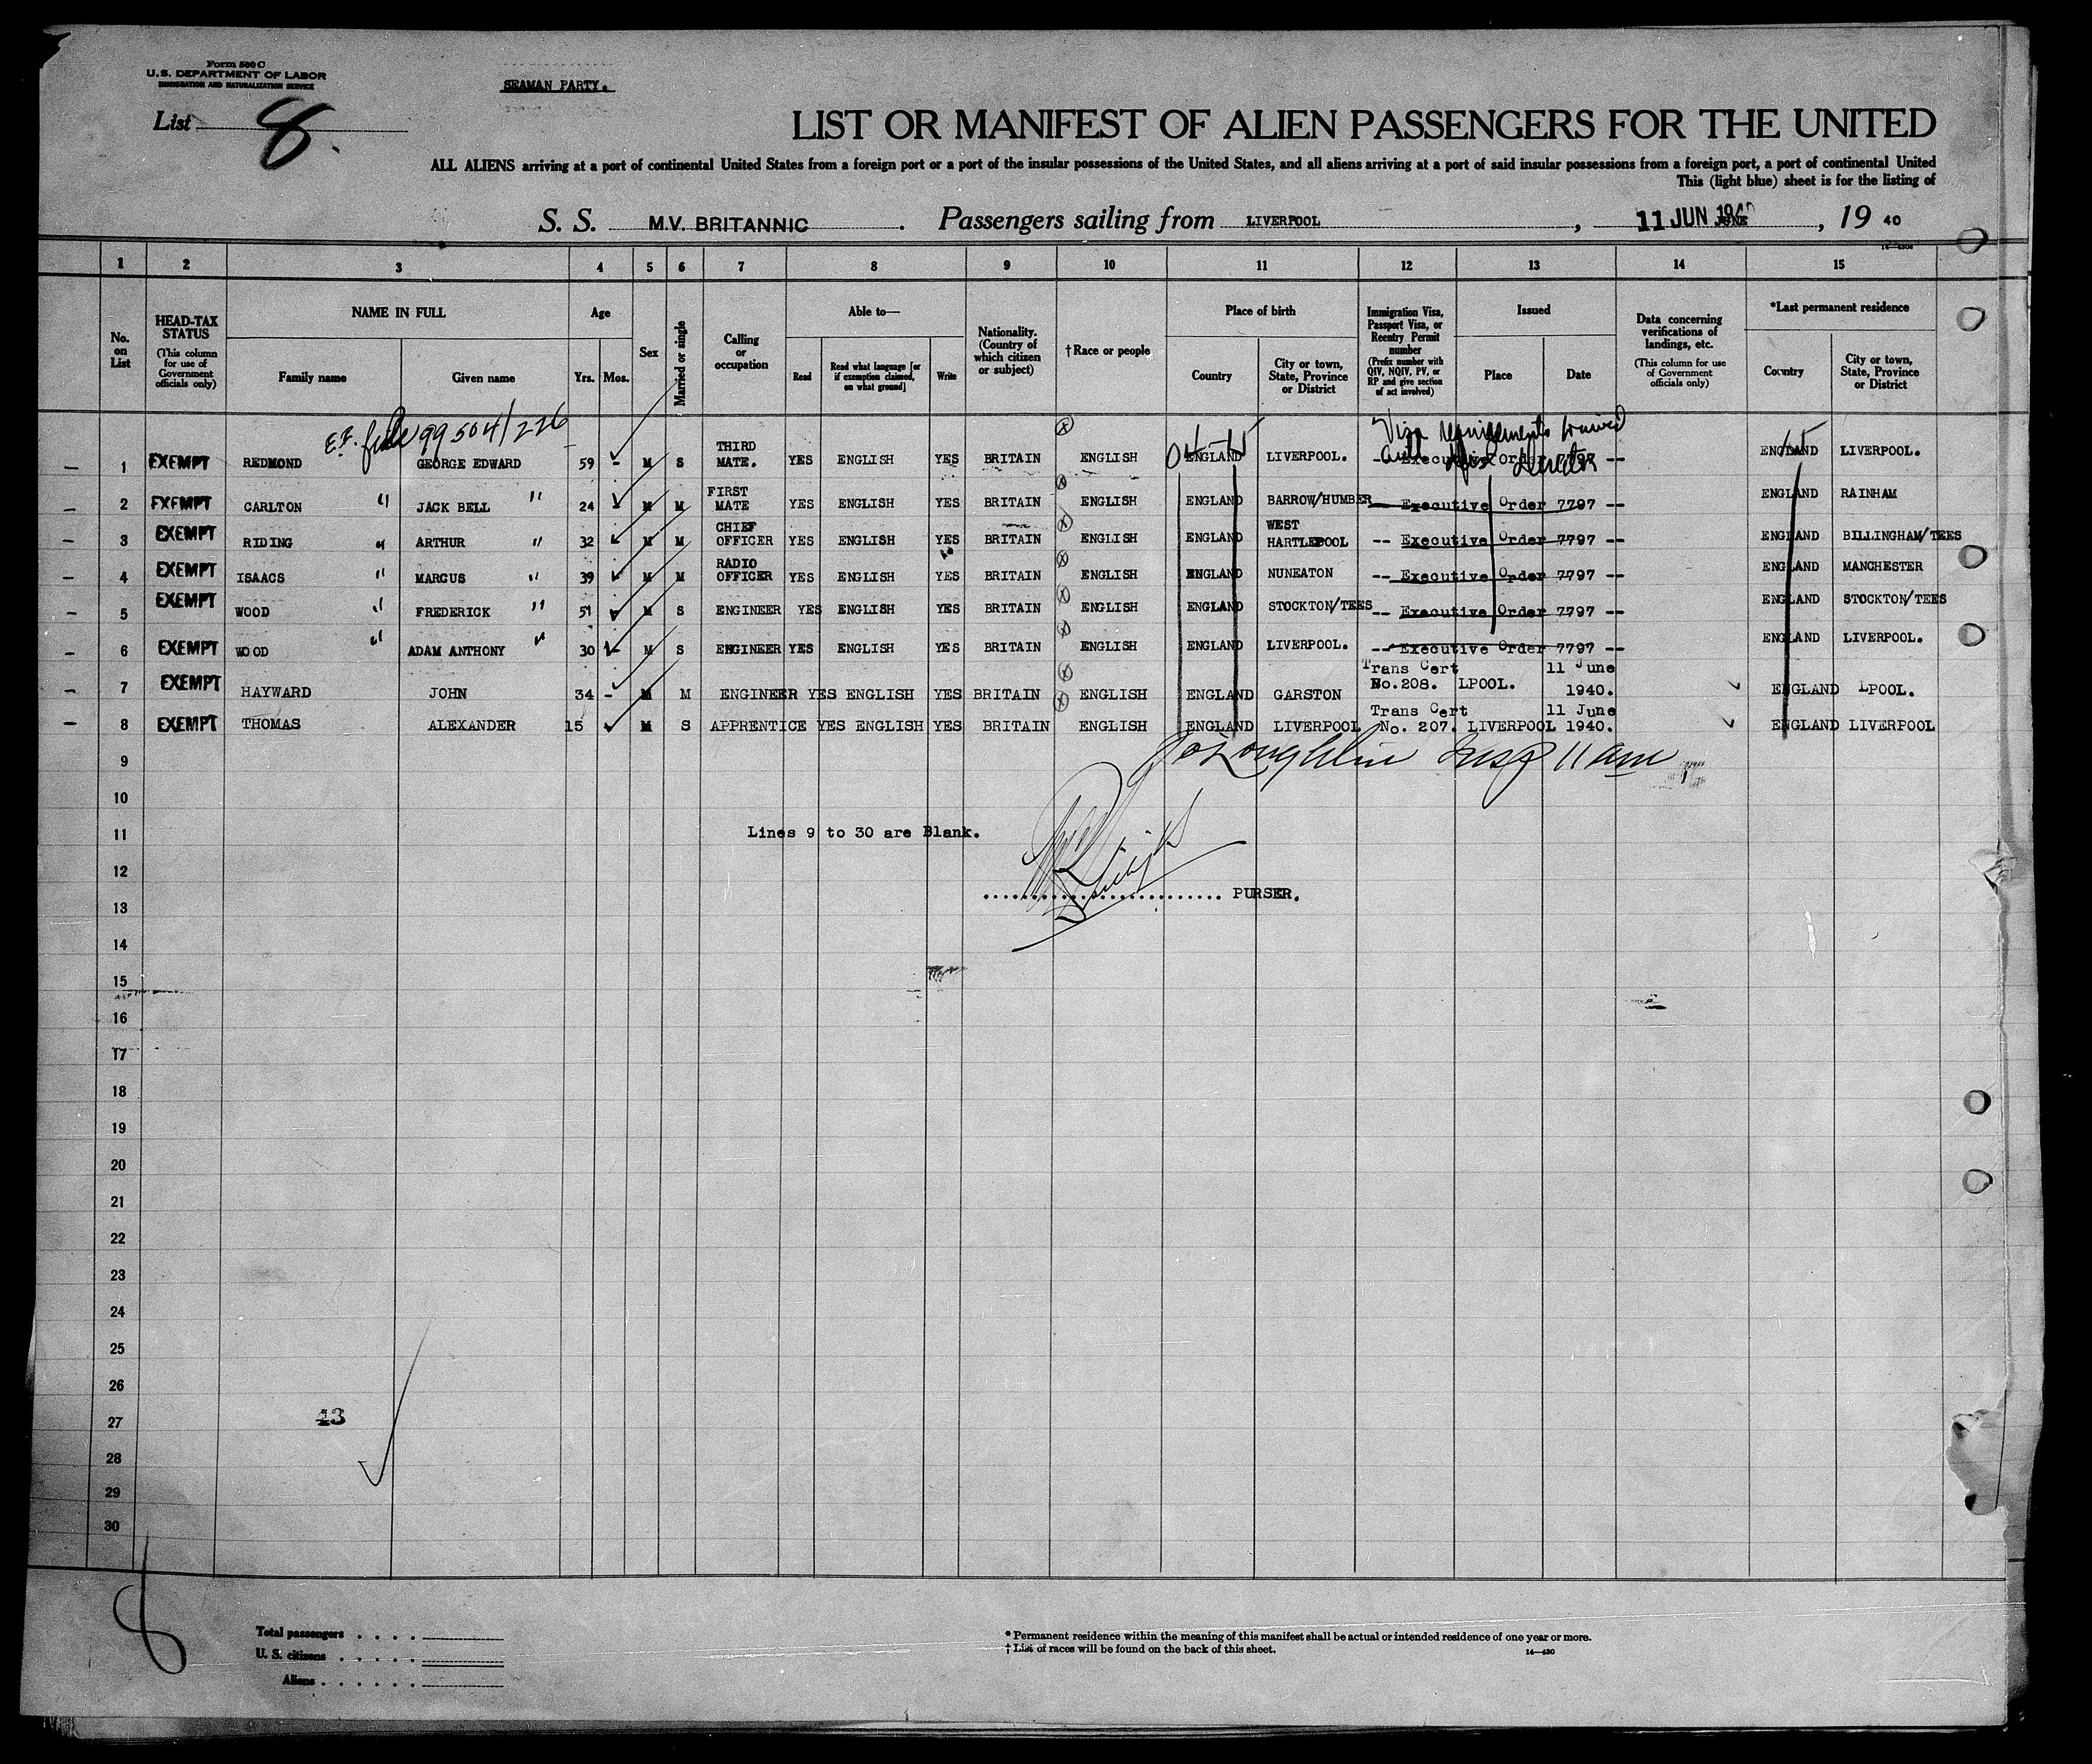 Form 500 C
U.S. DEPARTMENT OF LABOR
IMMIGRATION AND NATURALIZATION SERVICE
SEAMAN PARTY.
List 8.
LIST OR MANIFEST OF ALIEN PASSENGERS FOR THE UNITED
ALL ALIENS arriving at a port of continental United States from a foreign port or a port of the insular possessions of the United States, and all aliens arriving at a port of said insular possessions from a foreign port, a port of continental United
This (light blue) sheet is for the listing of
S. S. M.V. BRITANNIC. Passengers sailing from LIVERPOOL, 11 JUN 1940 JUNE, 19 40
1 2 3 4 5 6 7 8 9 10 11 12 13 14 15
No. on List
HEAD-TAX STATUS (This column for use of Government officials only)
NAME IN FULL
Family name Given name
Age
Yrs. Mos.
Sex
Married or single
Calling or occupation
Able to—
Read Read what language [or if exemption claimed, on what ground] Write
Nationality. (Country of which citizen or subject)
†Race or people
Place of birth
Country City or town, State, Province or District
Immigration Visa, Passport Visa, or Reentry Permit number (Prefix number with QIV, NQIV, PV, or RP and give section of act involved)
Issued
Place Date
Data concerning verifications of landings, etc. (This column for use of Government officials only)
*Last permanent residence
Country City or town, State, Province or District
file 99504/226
Visa requirements waived
1 EXEMPT REDMOND GEORGE EDWARD 59 - M S THIRD MATE. YES ENGLISH YES BRITAIN ENGLISH ENGLAND LIVERPOOL. -- Executive Order 7797 -- ENGLAND LIVERPOOL.
2 EXEMPT CARLTON " JACK BELL " 24 M M FIRST MATE YES ENGLISH YES BRITAIN ENGLISH ENGLAND BARROW/HUMBER -- Executive Order 7797 -- ENGLAND RAINHAM
3 EXEMPT RIDING " ARTHUR " 32 M M CHIEF OFFICER YES ENGLISH YES BRITAIN ENGLISH ENGLAND WEST HARTLEPOOL -- Executive Order 7797 -- ENGLAND BILLINGHAM/TEES
4 EXEMPT ISAACS " MARCUS " 39 M M RADIO OFFICER YES ENGLISH YES BRITAIN ENGLISH ENGLAND NUNEATON -- Executive Order 7797 -- ENGLAND MANCHESTER
5 EXEMPT WOOD " FREDERICK " 51 M S ENGINEER YES ENGLISH YES BRITAIN ENGLISH ENGLAND STOCKTON/TEES -- Executive Order 7797 -- ENGLAND STOCKTON/TEES
6 EXEMPT WOOD " ADAM ANTHONY " 30 M S ENGINEER YES ENGLISH YES BRITAIN ENGLISH ENGLAND LIVERPOOL. -- Executive Order 7797 -- ENGLAND LIVERPOOL.
7 EXEMPT HAYWARD JOHN 34 - M M ENGINEER YES ENGLISH YES BRITAIN ENGLISH ENGLAND GARSTON Trans Cert No. 208. LPOOL. 11 June 1940. ENGLAND LPOOL.
8 EXEMPT THOMAS ALEXANDER 15 M S APPRENTICE YES ENGLISH YES BRITAIN ENGLISH ENGLAND LIVERPOOL Trans Cert No. 207. LIVERPOOL 11 June 1940. ENGLAND LIVERPOOL
9
Insp 11 am
10
11 Lines 9 to 30 are Blank.
12
PURSER.
13
14
15
16
17
18
19
20
21
22
23
24
25
26
27 43
28
29
30
8
Total passengers
U. S. citizens
Aliens
* Permanent residence within the meaning of this manifest shall be actual or intended residence of one year or more.
† List of races will be found on the back of this sheet.